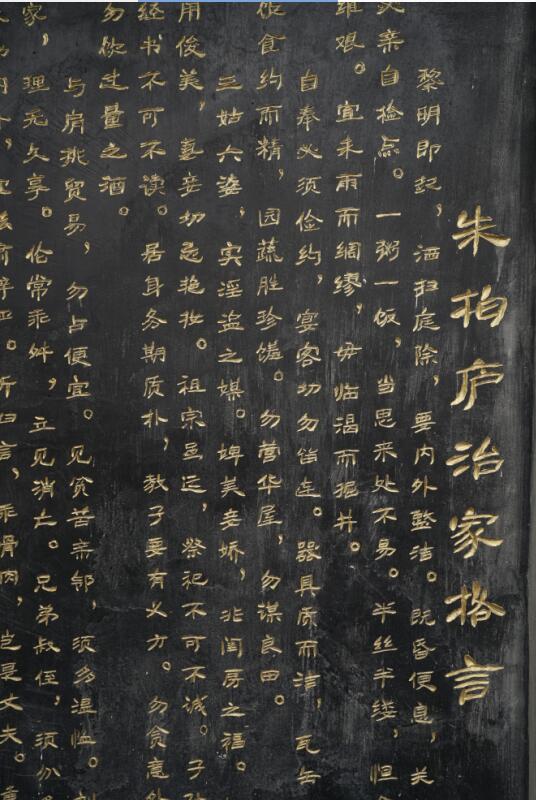 朱柏庐治家格言
黎明即起，洒扫庭除，要内外整洁。既昏便息，关
亲自检点。一粥一饭，当思来处不易。半丝半缕，恒
维艰。宜未雨而绸缪，毋临渴而掘井。
自奉必须俭约，宴客切勿留连。器具质而洁，瓦缶
饮食约而精，园蔬胜珍馐。勿营华屋，勿谋良田。
三姑六婆，实淫盗之媒。婢美妾娇，非闺房之福。
用俊美，妻妾切忌艳妆。祖宗虽远，祭祀不可不诚。子
经书不可不读。居身务期质朴，教子要有义方。勿贪意
勿饮过量之酒。
与肩挑贸易，勿占便宜。见贫苦亲邻，须多温恤。
家，理无久享。伦常乖舛，立见消亡。兄弟叔侄，须分
辞严。听妇言，乖骨肉，岂是丈夫。